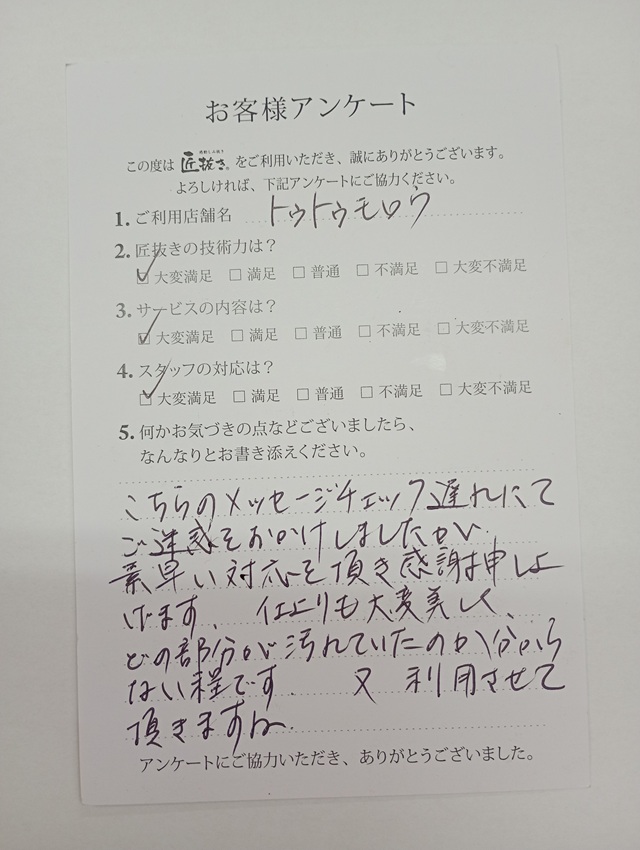 お客様アンケート
この度は 匠抜き をご利用いただき、誠にありがとうございます。
よろしければ、下記アンケートにご協力ください。
1. ご利用店舗名 トゥトゥモロウ
2. 匠抜きの技術力は？
☑ 大変満足 □ 満足 □ 普通 □ 不満足 □ 大変不満足
3. サービスの内容は？
☑ 大変満足 □ 満足 □ 普通 □ 不満足 □ 大変不満足
4. スタッフの対応は？
☑ 大変満足 □ 満足 □ 普通 □ 不満足 □ 大変不満足
5. 何かお気づきの点などございましたら、
なんなりとお書き添えください。
こちらのメッセージチェック遅れにて
ご迷惑をおかけしましたが、
素早い対応を頂き感謝申しよ
げます、仕上りも大変美しく、
どの部分が汚れていたのか分から
ない程です、又 利用させて
頂きますね
アンケートにご協力いただき、ありがとうございました。